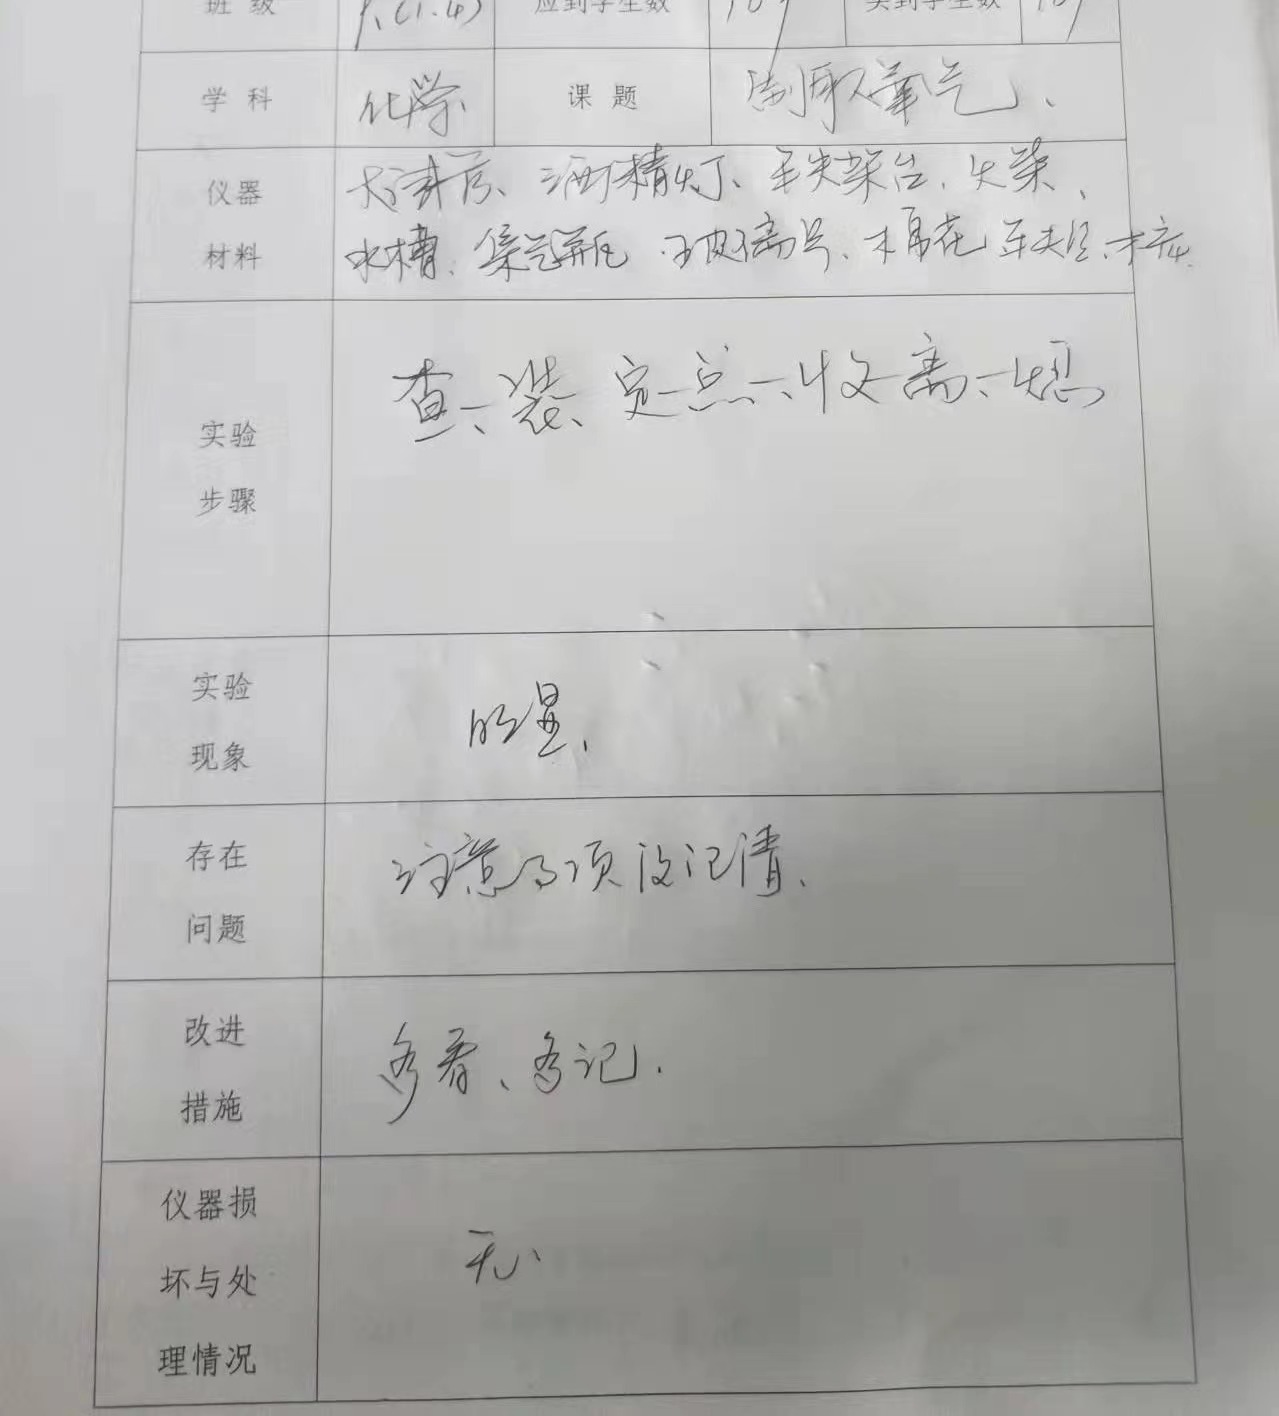 班级 九(1.4) 应到学生数 109 实到学生数 109
学科 化学 课题 制取氧气、
仪器 大试管、酒精灯、铁架台、火柴、
材料 水槽、集气瓶 玻璃片、棉花 导管、木
查、装、定、点、收、离、熄
实验
步骤
实验
现象
明显、
存在
问题
注意事项没记清、
改进
措施
多看、多记.
仪器损
坏与处
理情况
无、